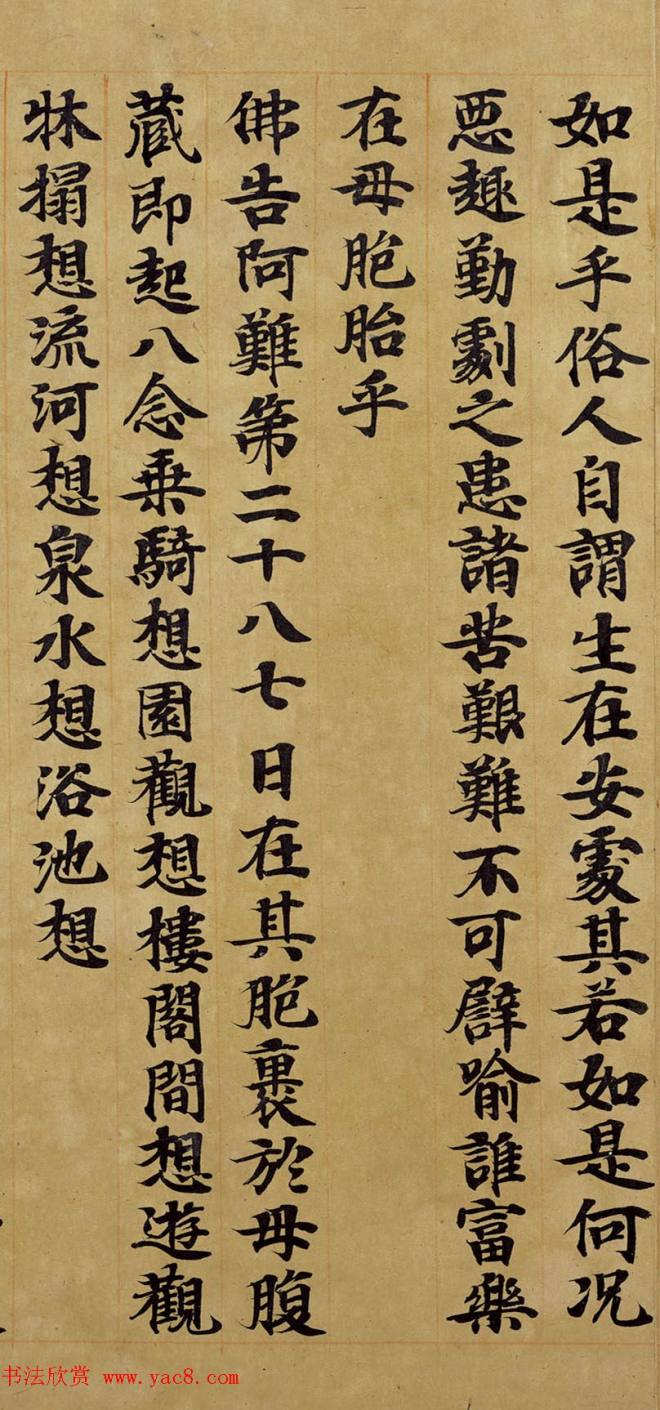 如是乎俗人自謂生在安處其若如是何況
惡趣勤劇之患諸苦艱難不可譬喻誰富樂
在母胞胎乎
佛告阿難第二十八七日在其胞裏於母腹
藏即起八念乗騎想園觀想樓閣間想遊觀
牀搨想流河想泉水想浴池想
书法欣赏 www.yac8.com